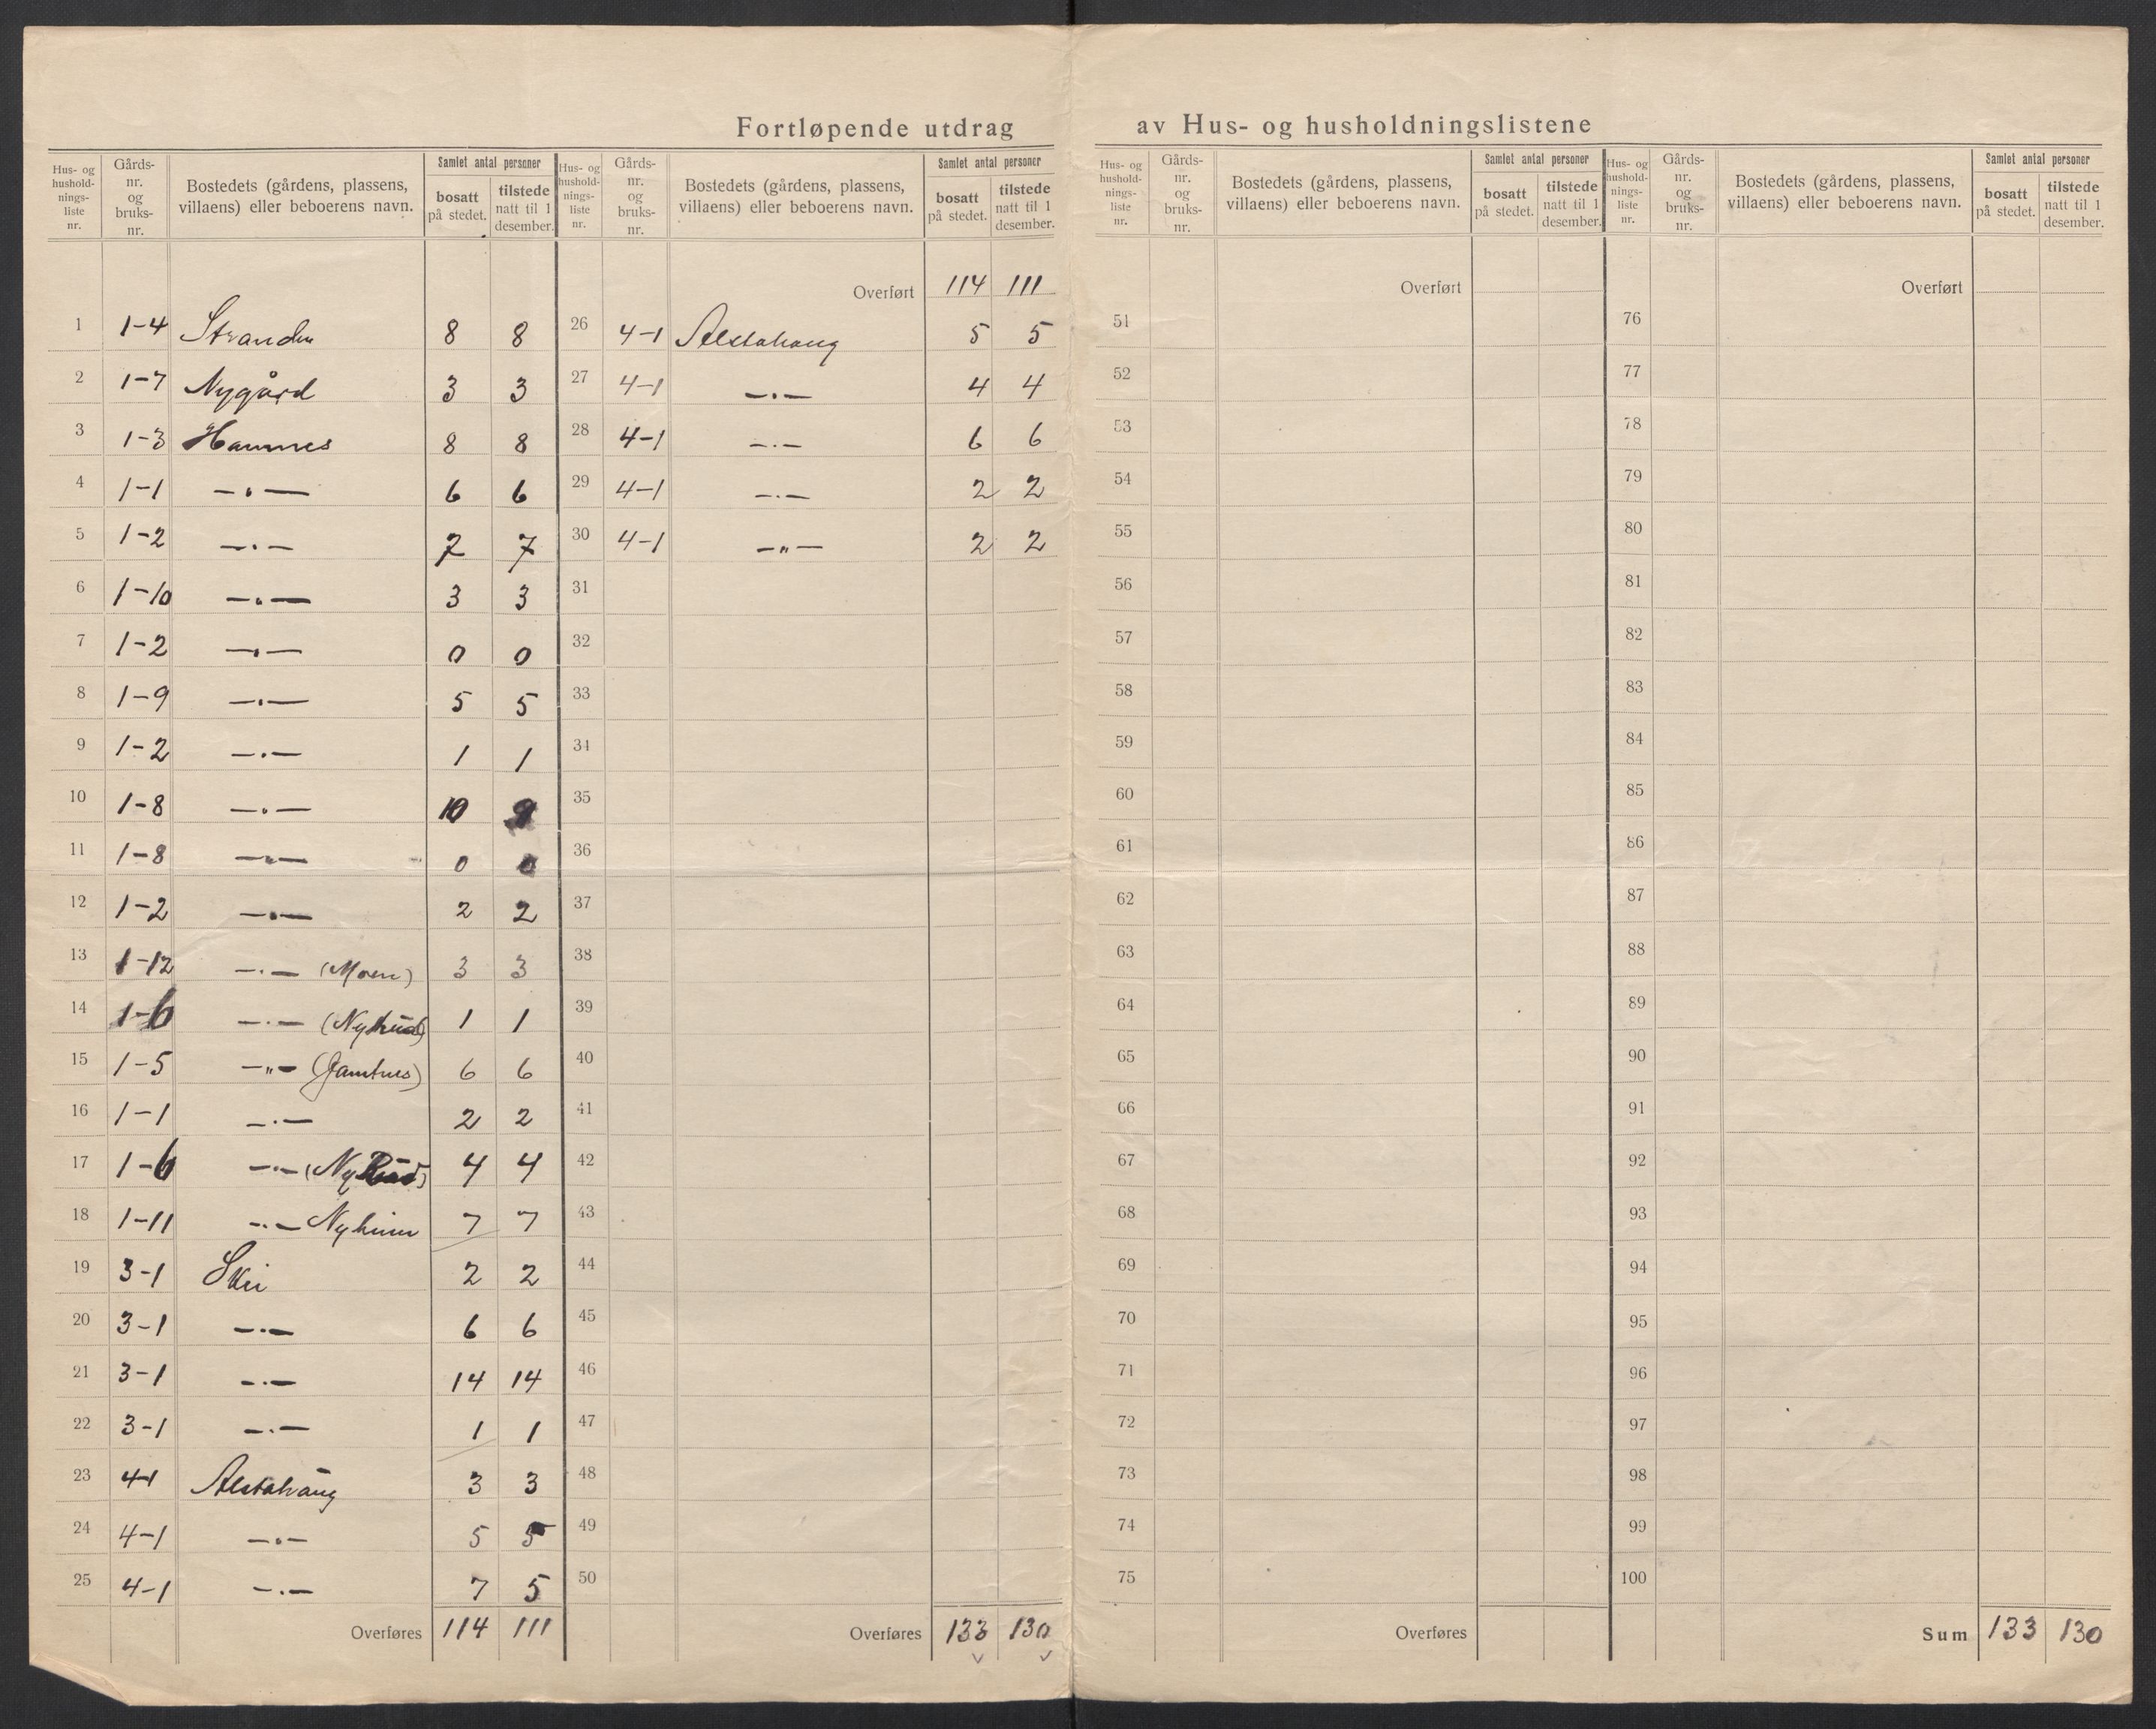 Fortløpende utdrag av Hus- og husholdningslistene
Hus- og hushold-nings-liste nr. Gårds-nr. og bruks-nr. Bostedets (gårdens, plassens, villaens) eller beboerens navn. Samlet antal personer bosatt på stedet. tilstede natt til 1 desember.
1 1-4 Stranden 8 8
2 1-7 Nygård 3 3
3 1-3 Hamnes 8 8
4 1-1 —"— 6 6
5 1-2 —"— 7 7
6 1-10 —"— 3 3
7 1-2 —"— 0 0
8 1-9 —"— 5 5
9 1-2 —"— 1 1
10 1-8 —"— 10 9
11 1-8 —"— 0 0
12 1-2 —"— 2 2
13 1-12 —"— (Moen) 3 3
14 1-6 —"— 1 1
15 1-5 —"— 6 6
16 1-1 —"— 2 2
17 1-6 —"— 4 4
18 1-11 —"— Nyheim 7 7
19 3-1 Skei 2 2
20 3-1 —"— 6 6
21 3-1 —"— 14 14
22 3-1 —"— 1 1
23 4-1 Alstahaug 3 3
24 4-1 —"— 5 5
25 4-1 —"— 7 5
Overføres 114 111
Hus- og hushold-nings-liste nr. Gårds-nr. og bruks-nr. Bostedets (gårdens, plassens, villaens) eller beboerens navn. Samlet antal personer bosatt på stedet. tilstede natt til 1 desember.
Overført 114 111
26 4-1 Alstahaug 5 5
27 4-1 —"— 4 4
28 4-1 —"— 6 6
29 4-1 —"— 2 2
30 4-1 —"— 2 2
31
32
33
34
35
36
37
38
39
40
41
42
43
44
45
46
47
48
49
50
Overføres 133 130
Hus- og hushold-nings-liste nr. Gårds-nr. og bruks-nr. Bostedets (gårdens, plassens, villaens) eller beboerens navn. Samlet antal personer bosatt på stedet. tilstede natt til 1 desember.
Overført
51
52
53
54
55
56
57
58
59
60
61
62
63
64
65
66
67
68
69
70
71
72
73
74
75
Overføres
Hus- og hushold-nings-liste nr. Gårds-nr. og bruks-nr. Bostedets (gårdens, plassens, villaens) eller beboerens navn. Samlet antal personer bosatt på stedet. tilstede natt til 1 desember.
Overført
76
77
78
79
80
81
82
83
84
85
86
87
88
89
90
91
92
93
94
95
96
97
98
99
100
Sum 133 130